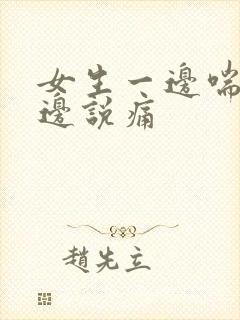 女生一邊喘
邊說痛
趙先立